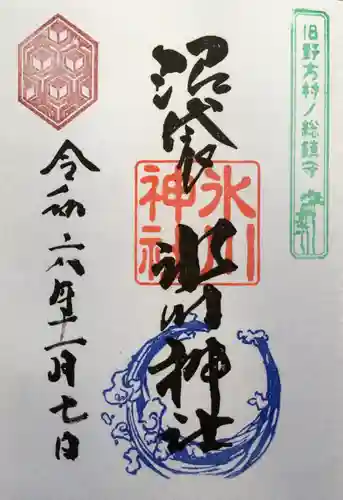 旧野方村ノ総鎮守
沼袋氷川神社
氷川神社
令和六年十一月七日